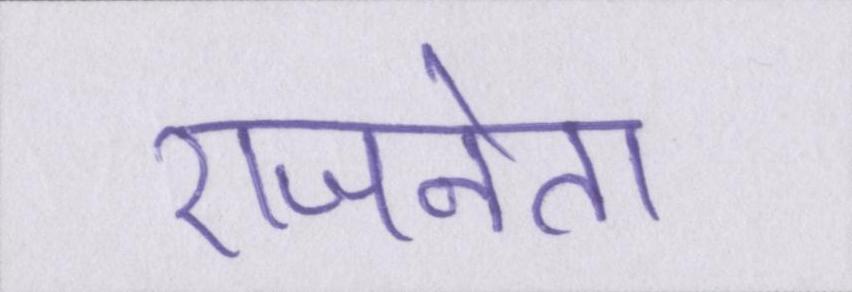 राजनेता